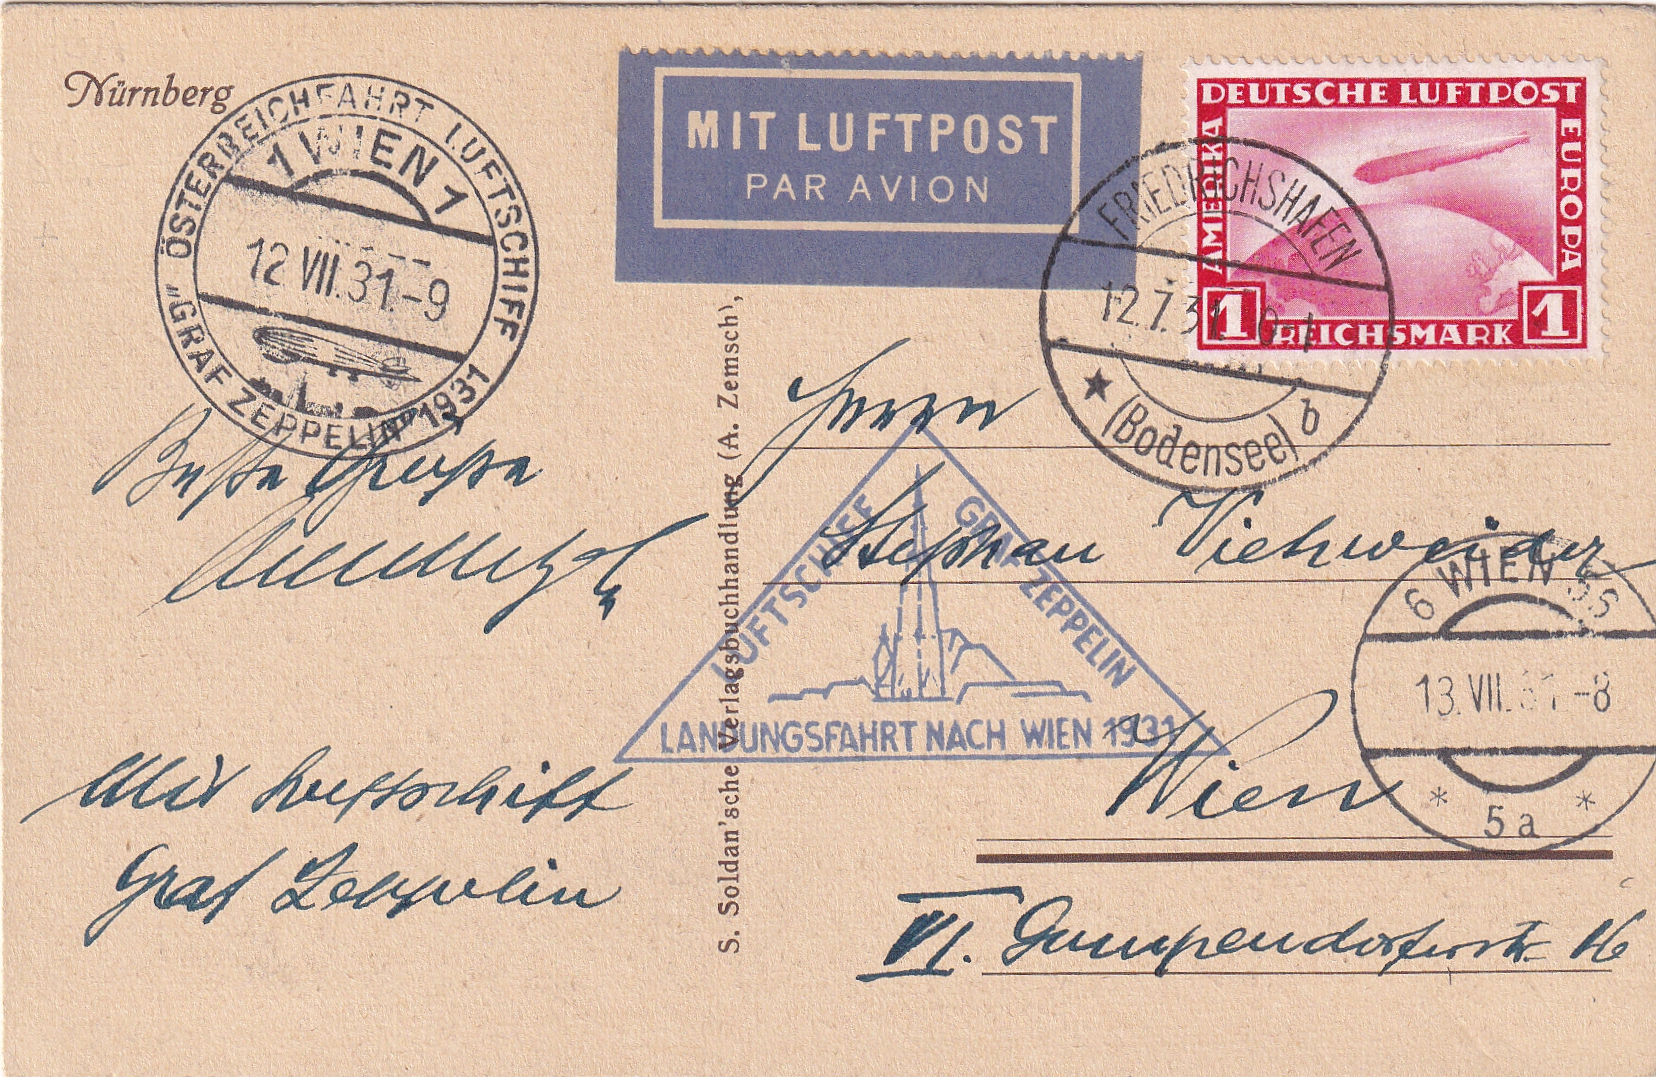 Nürnberg
ÖSTERREICHFAHRT LUFTSCHIFF
"GRAF ZEPPELIN" 1931
1 WIEN 1
12 VII.31.-9
MIT LUFTPOST
PAR AVION
DEUTSCHE LUFTPOST
AMERIKA
EUROPA
1 REICHSMARK 1
FRIEDRICHSHAFEN
12.7.31. 0-1
(Bodensee) b
Herrn
Beste Grüsse
Stephan Viehweider
LUFTSCHIFF
GRAF ZEPPELIN
LANDUNGSFAHRT NACH WIEN 1931
6 WIEN 56
13.VII.31-8
* 5a *
Wien
Mit Luftschiff
Graf Zeppelin
VI. Gumpendorferstr. 16
S. Soldan'sche Verlagsbuchhandlung (A. Zemsch),